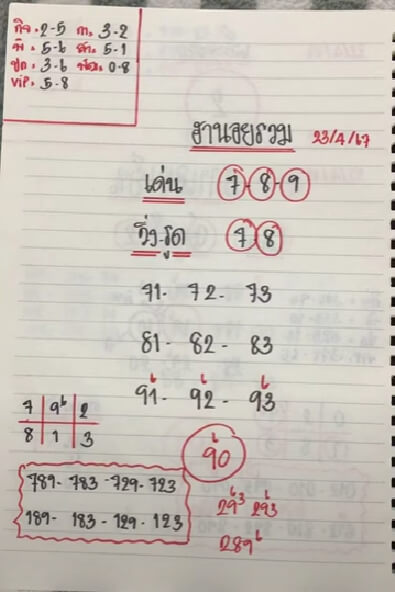 กิจ. 2-5 ก. 3-2
พิ. 5-6 ส. 5-1
ปก. 3-6 พัฒ. 0-8
VIP. 5-8
ฮานอยรวม 23/4/67
เด่น 7-8-9
วิ่ง-รูด 7 8
71- 72- 73
81- 82- 83
91- 92- 93
7 9 2
8 1 3
90
789- 783-729-723
189- 183-129-123
293 293
289